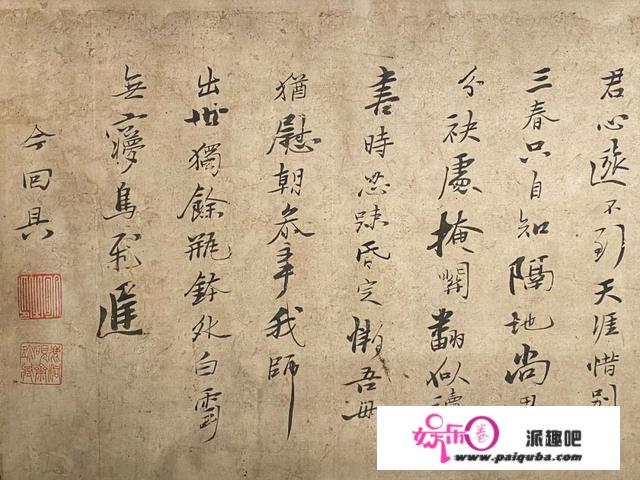 君心遠不到天涯惜別
三春只自知隔地尚思
分袂處掩關翻似讀
書時忽疎昏定慚吾母
猶慰朝參事我師
出世獨餘瓶鉢外白雲
無寥鳥飛進
今回具
娱乐卷
派趣吧
www.paiquba.com